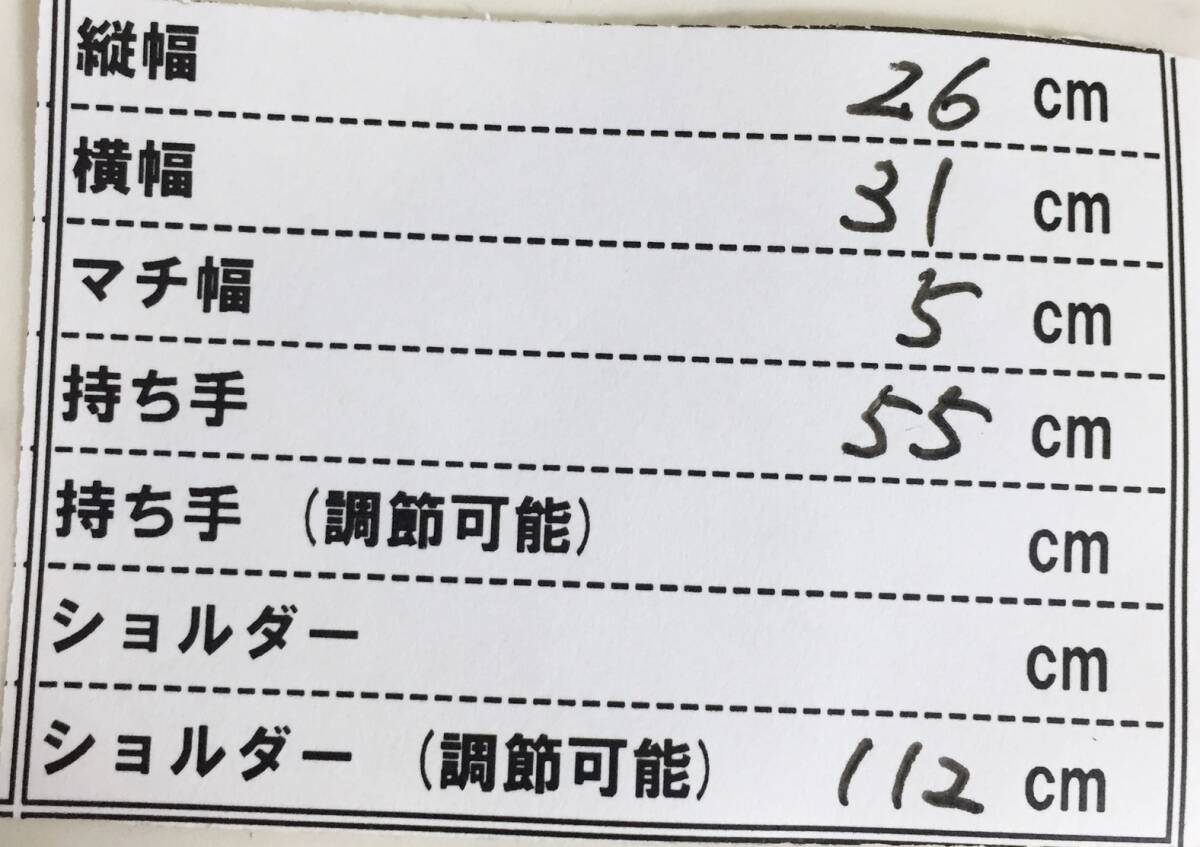 縦幅 26 cm
横幅 31 cm
マチ幅 5 cm
持ち手 55 cm
持ち手 (調節可能) cm
ショルダー cm
ショルダー (調節可能) 112 cm